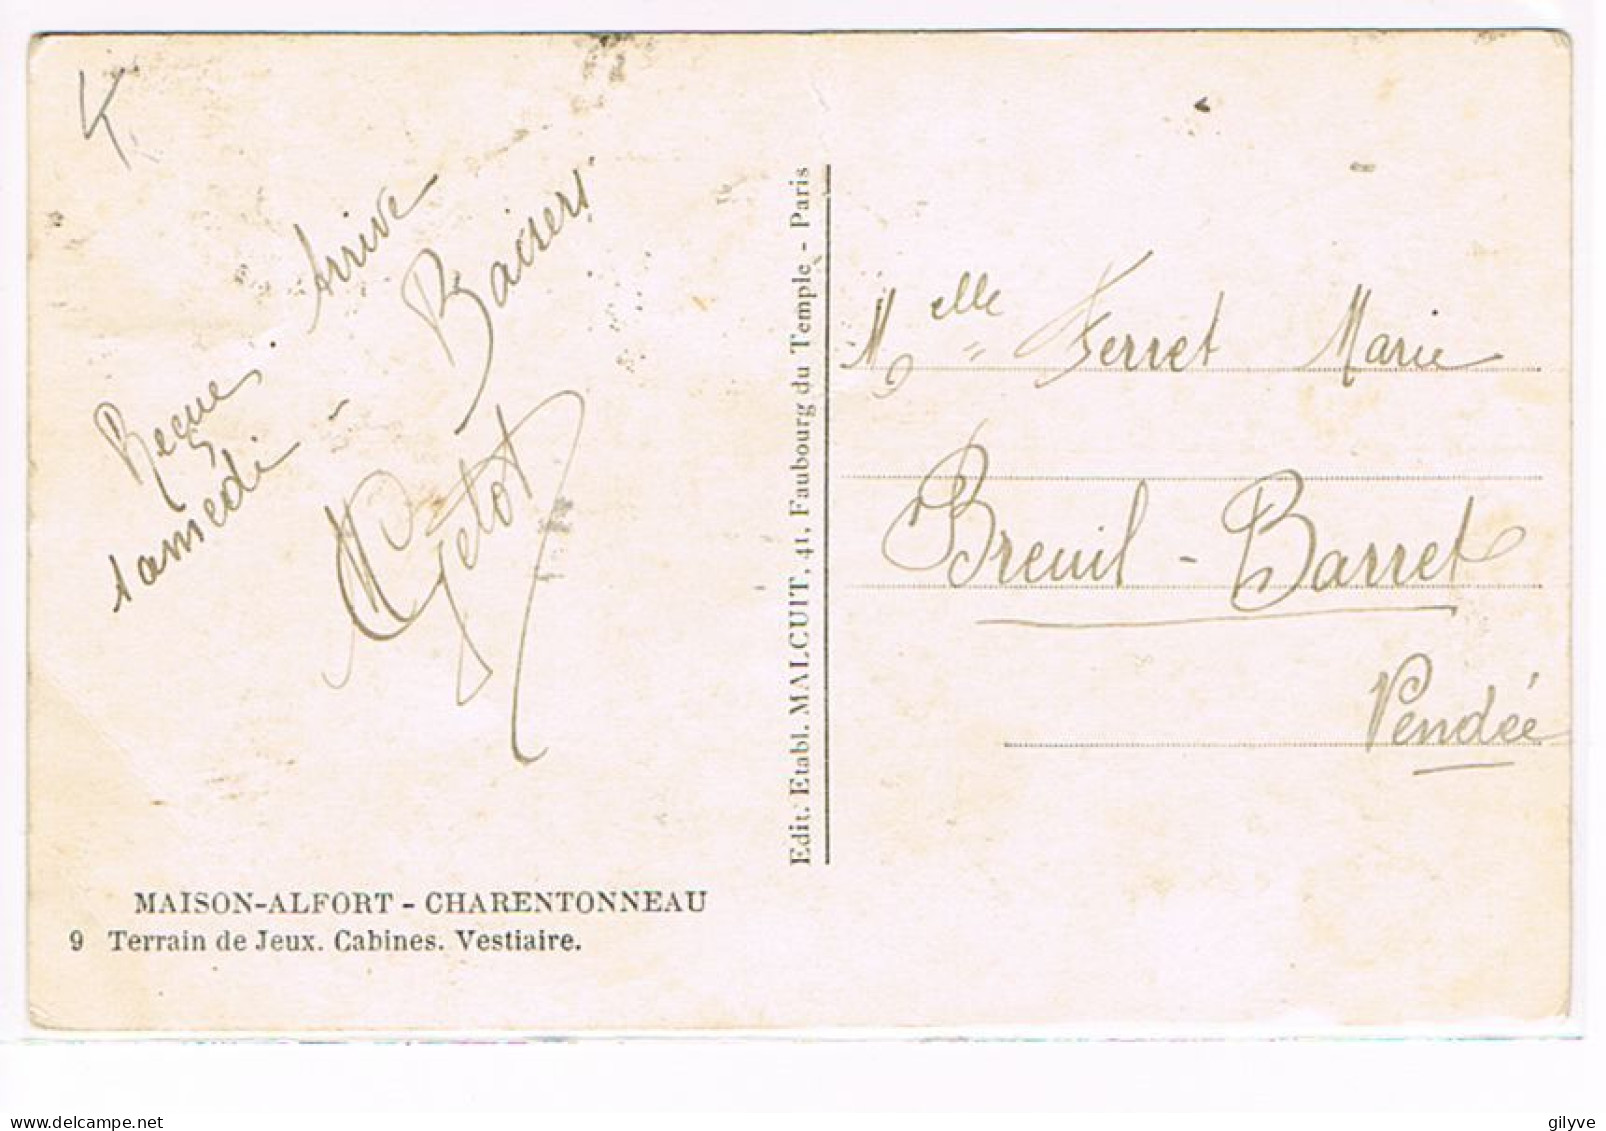 K
Reçue. Arrive
samedi - Baisers
Edit. Etabl. MALCUIT. 41, Faubourg du Temple - Paris
Melle Ferret Marie
Breuil - Barret
Vendée
MAISON-ALFORT - CHARENTONNEAU
9 Terrain de Jeux. Cabines. Vestiaire.
www.delcampe.net
gilyve